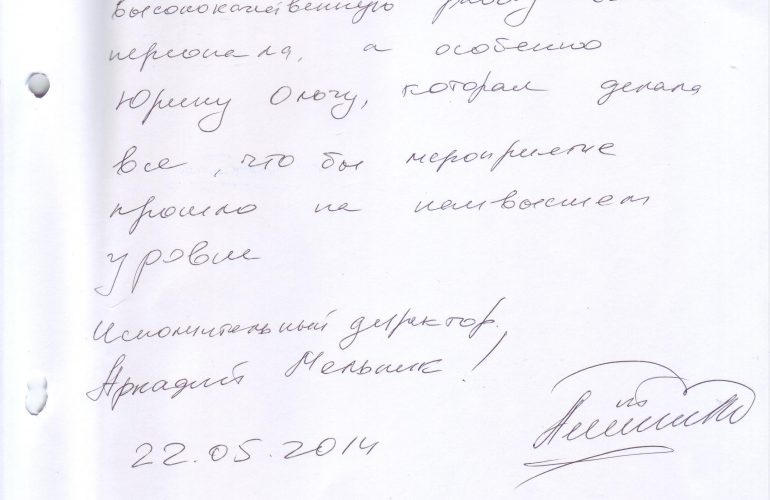 высококачественную работу
персонала, а особенно
Юрину Ольгу, которая делала
все, что бы мероприятие
прошло на наивысшем
уровне
Исполнительный директор,
Аркадий Мельник!
22.05.2014